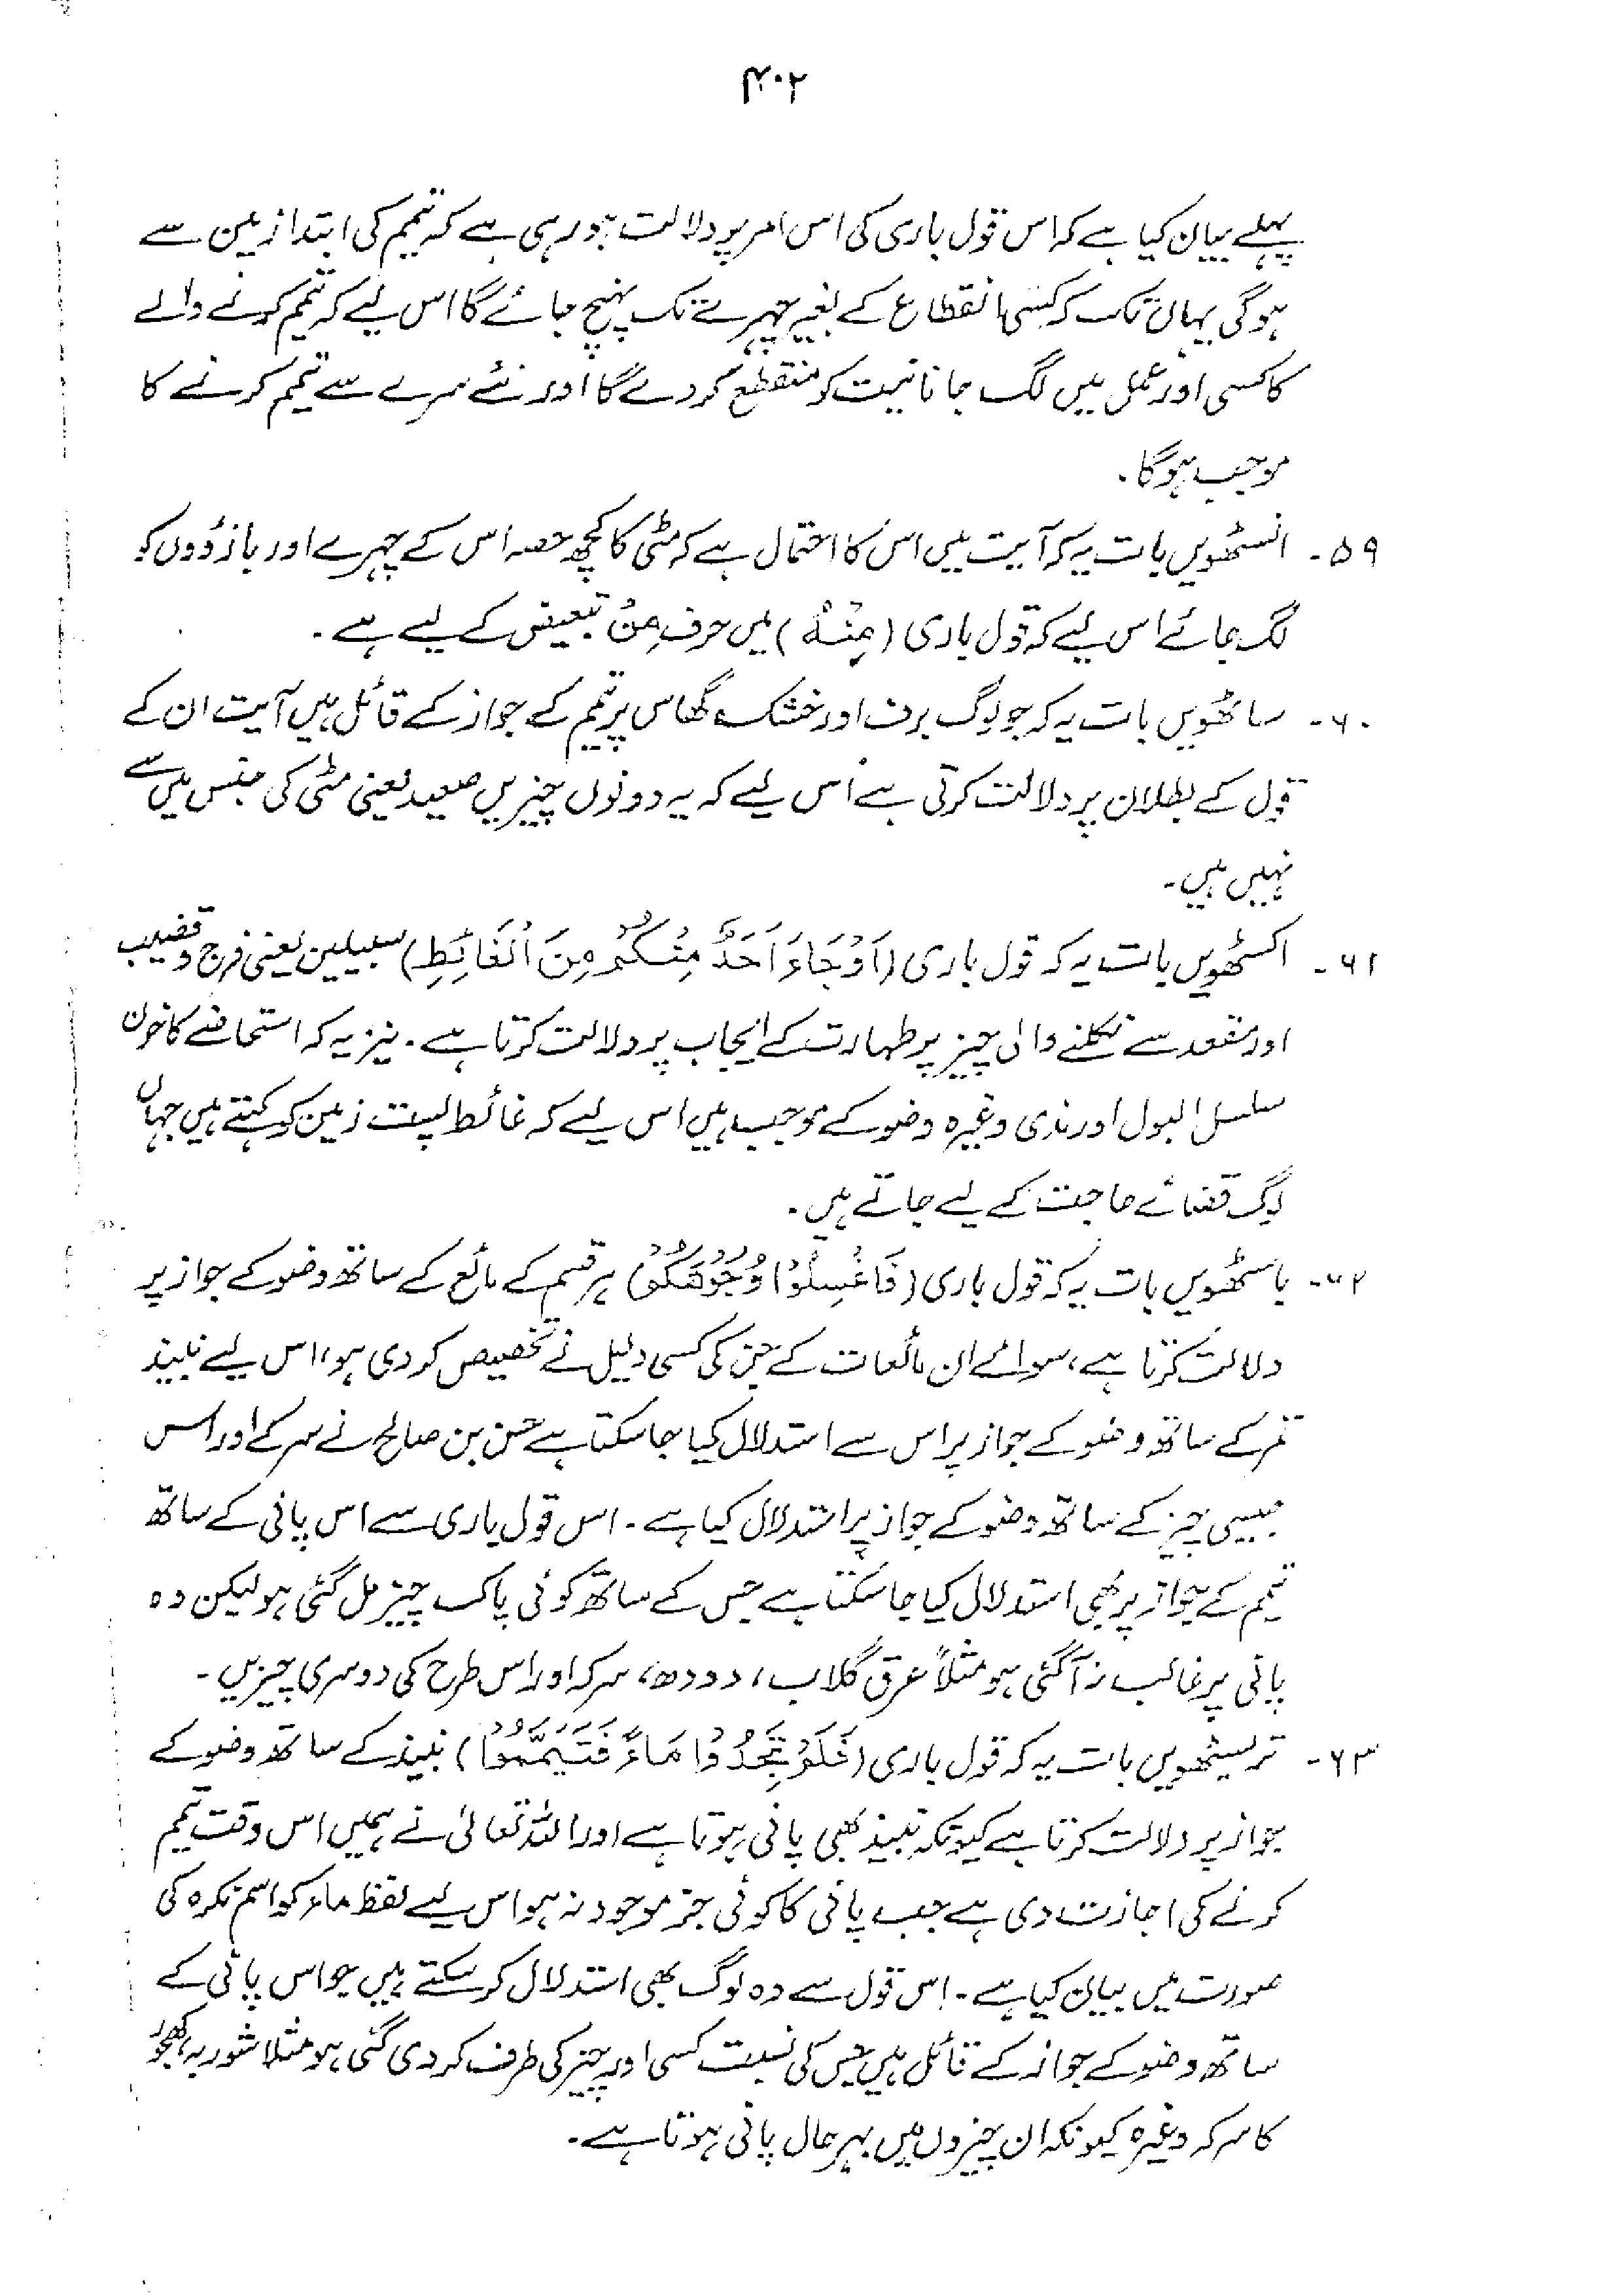 ۴۰۲
پہلے بیان کیا ہے کہ اس قول باری کی اس امر پر دلالت ہو رہی ہے کہ تیمم کی ابتدا زمین سے
ہوگی یہاں تک کہ کسی انقطاع کے بغیر چہرے تک پہنچ جائے گا اس لیے کہ تیمم کرنے والے
کا کسی اور عمل میں لگ جانا نیت کو منقطع کر دے گا اور نئے سرے سے تیمم کرنے کا
موجب ہوگا۔
۵۹ - انسٹھویں بات یہ کہ آیت میں اس کا احتمال ہے کہ مٹی کا کچھ حصہ اس کے چہرے اور بازوؤں کو
لگ جائے اس لیے کہ قول باری (مِنْهُ) میں حرف مِنْ تبعیض کے لیے ہے۔
۶۰ - ساٹھویں بات یہ کہ جو لوگ برف اور خشک گھاس پر تیمم کے جواز کے قائل ہیں آیت ان کے
قول کے بطلان پر دلالت کرتی ہے اس لیے کہ یہ دونوں چیزیں صعید یعنی مٹی کی جنس میں سے
نہیں ہیں۔
۶۱ - اکسٹھویں بات یہ کہ قول باری (اَوْ جَاءَ اَحَدٌ مِنْكُمْ مِنَ الْغَائِطِ) سبیلین یعنی فرج و قضیب
اور مقعد سے نکلنے والی چیز پر طہارت کے ایجاب پر دلالت کرتا ہے۔ نیز یہ کہ استحاضے کا خون
سلسل البول اور مذی وغیرہ وضو کے موجب ہیں اس لیے کہ غائط پست زمین کو کہتے ہیں جہاں
لوگ قضائے حاجت کے لیے جاتے ہیں۔
۶۲ - باسٹھویں بات یہ کہ قول باری (فَاغْسِلُوْا وُجُوْهَكُمْ) ہر قسم کے مائع کے ساتھ وضو کے جواز پر
دلالت کرتا ہے، سوائے ان مائعات کے جن کی کسی دلیل نے تخصیص کر دی ہو، اس لیے نبیذ
تمر کے ساتھ وضو کے جواز پر اس سے استدلال کیا جا سکتا ہے حسن بن صالح نے سرکے اور اس
جیسی چیز کے ساتھ وضو کے جواز پر استدلال کیا ہے۔ اس قول باری سے اس پانی کے ساتھ
تیمم کے جواز پر بھی استدلال کیا جا سکتا ہے جس کے ساتھ کوئی پاک چیز مل گئی ہو لیکن وہ
پانی پر غالب نہ آگئی ہو مثلاً عرق گلاب، دودھ، سرکہ اور اس طرح کی دوسری چیزیں۔
۶۳ - تریسٹھویں بات یہ کہ قول باری (فَلَمْ تَجِدُوْا مَاءً فَتَيَمَّمُوْا) نبیذ کے ساتھ وضو کے
جواز پر دلالت کرتا ہے کیونکہ نبیذ بھی پانی ہوتا ہے اور اللہ تعالیٰ نے ہمیں اس وقت تیمم
کرنے کی اجازت دی ہے جب پانی کا کوئی جز موجود نہ ہو اس لیے لفظ ماء کو اسم نکرہ کی
صورت میں بیان کیا ہے۔ اس قول سے وہ لوگ بھی استدلال کر سکتے ہیں جو اس پانی کے
ساتھ وضو کے جواز کے قائل ہیں جس کی نسبت کسی اور چیز کی طرف کر دی گئی ہو مثلا شوربہ، کھجور
کا سرکہ وغیرہ کیونکہ ان چیزوں میں بہر حال پانی ہوتا ہے۔